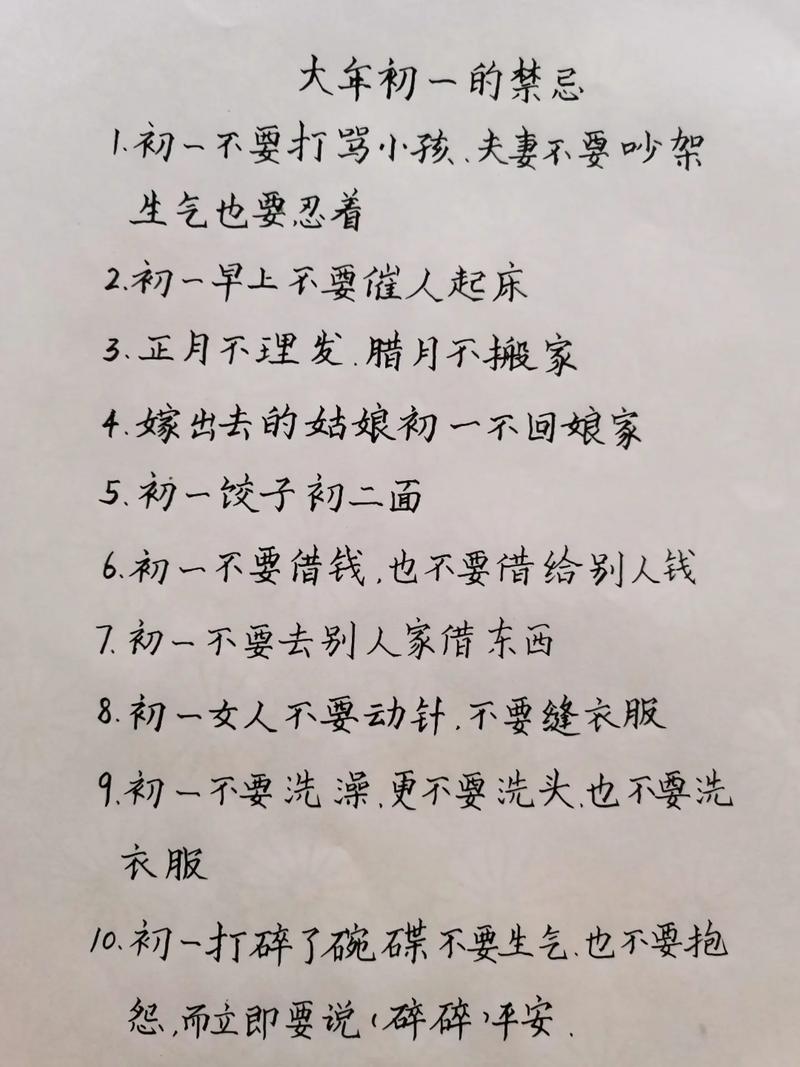 大年初一的禁忌
1.初一不要打骂小孩、夫妻不要吵架
生气也要忍着
2.初一早上不要催人起床
3.正月不理发、腊月不搬家
4.嫁出去的姑娘初一不回娘家
5.初一饺子初二面
6.初一不要借钱,也不要借给别人钱
7.初一不要去别人家借东西
8.初一女人不要动针,不要缝衣服
9.初一不要洗澡,更不要洗头,也不要洗
衣服
10.初一打碎了碗碟不要生气、也不要抱
怨,而立即要说(碎碎)平安.